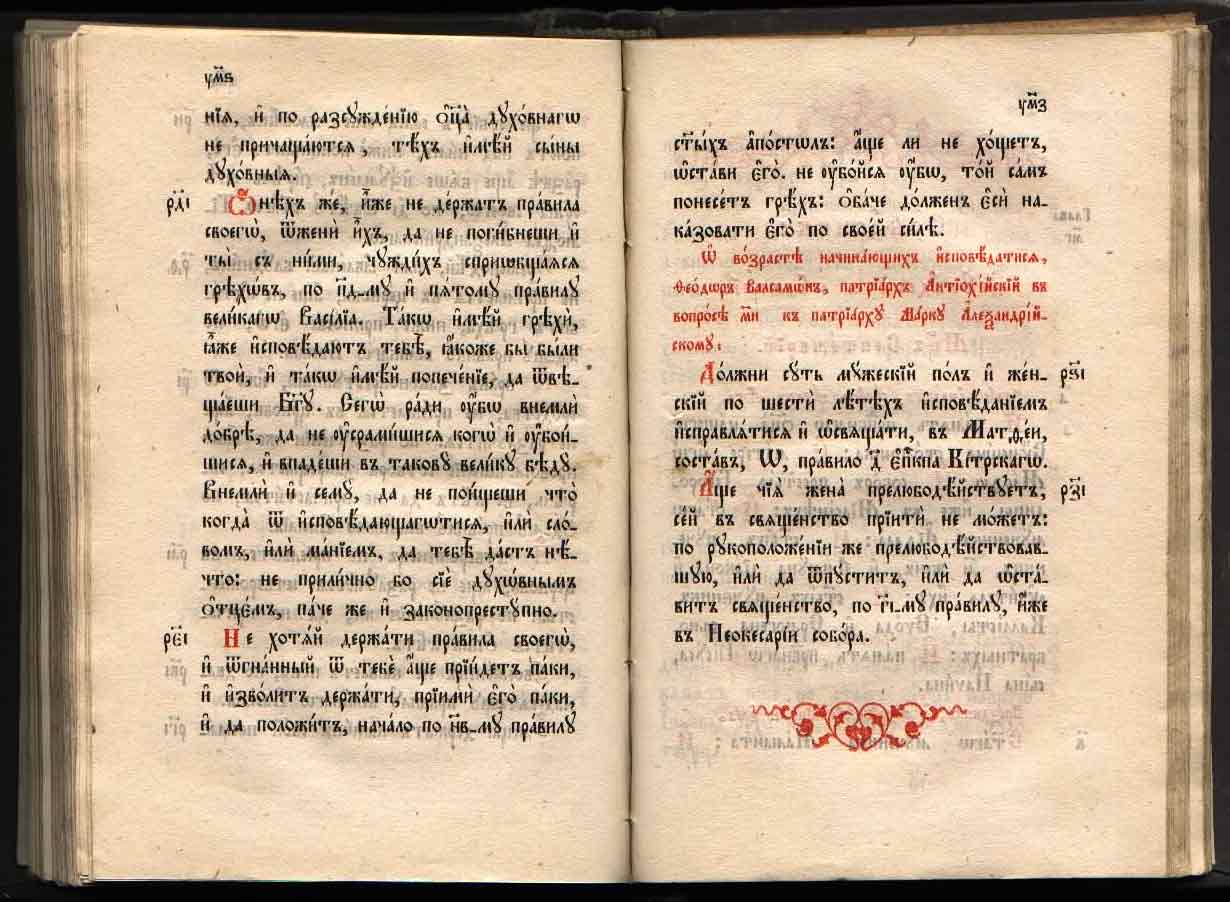 ум҃ѕ
нїѧ, и҆ по разсꙋжде́нїю ѻ҆ц҃а̀ дꙋхо́внагѡ
не причаща́ютсѧ, тѣ́хъ и҆мѣ́й сы́ны
дꙋхо́вныѧ.
рд҃і
Ѻ҆нѣ́хъ же, и҆̀же не держа́тъ пра́вила
своегѡ̀, ѿженѝ и҆́хъ, да не поги́бнеши и҆
ты̀ съ ни́ми, чꙋжди́хъ сприѡбща́ѧсѧ
грѣхѡ́въ, по п҃д_мꙋ и҆ пѧ́томꙋ пра́вилꙋ
вели́кагѡ Васи́лїа. Та́кѡ и҆мѣ́й грѣхѝ,
ꙗ҆̀же и҆сповѣ́даютъ тебѣ̀, ꙗ҆́коже бы бы́ли
твоѝ, и҆ та́кѡ и҆мѣ́й попече́нїе, да ѿвѣ_
ща́еши Бг҃ꙋ. Сегѡ̀ ра́ди ᲂу҆̀бѡ внемлѝ
до́брѣ, да не ᲂу҆срами́шисѧ когѡ̀ и҆ ᲂу҆бои́_
шисѧ, и҆ впаде́ши въ такову̀ вели́кꙋ бѣдꙋ̀.
Внемлѝ и҆ семꙋ̀, да не пои́щеши что̀
когда̀ ѿ и҆сповѣ́дающагѡтисѧ, и҆лѝ сло́_
вомъ, и҆лѝ ма́нїемъ, да тебѣ̀ да́стъ нѣ́_
что: не прили́чно бо сїѐ дꙋхѡ́внымъ
ѻ҆тце́мъ, па́че же и҆ законопрестꙋ́пно.
ре҃і
Не хотѧ́й держа́ти пра́вила своегѡ̀,
и҆ ѿгна́нный ѿ тебѐ а҆́ще прїи́детъ па́ки,
и҆ и҆зво́литъ держа́ти, прїимѝ є҆го̀ па́ки,
и҆ да положи́тъ, нача́ло по н҃в_мꙋ пра́вилꙋ
ум҃з
ст҃ы́хъ а҆по́столъ: а҆́ще ли не хо́щетъ,
ѡ҆ста́ви є҆го̀. не ᲂу҆бо́йсѧ ᲂу҆̀бѡ, то́й са́мъ
понесе́тъ грѣ́хъ: ѻ҆ба́че до́лженъ є҆сѝ на_
казова́ти є҆го̀ по свое́й си́лѣ.
Ѡ҆ во́зрастѣ начина́ющихъ и҆сповѣ́датисѧ,
Ѳео́дѡръ Валсамѡ́нъ, патрїа́рхъ А҆нтїохі́йскїй въ
вопро́сѣ м҃и къ патрїа́рхꙋ Ма́ркꙋ А҆леѯандрі́й_
скомꙋ:
До́лжни сꙋ́ть мꙋ́жескїй по́лъ и҆ же́н_
рѕ҃і
скїй по шестѝ лѣ́тѣхъ и҆сповѣ́данїемъ
и҆справлѧ́тисѧ и҆ ѡ҆свѧща́ти, въ Матѳе́и,
соста́въ, Ѡ, пра́вило д҃ є҆пⷭ҇кпа Кі́трскагѡ.
А҆́ще чїѧ̀ жена̀ прелюбодѣ́йствꙋетъ,
рз҃і
се́й въ свѧще́нство прїитѝ не мо́жетъ:
по рꙋкоположе́нїи же прелюбодѣ́йствовав_
шꙋю, и҆лѝ да ѿпꙋ́ститъ, и҆лѝ да ѡ҆ста́_
витъ свѧще́нство, по г҃і_мꙋ пра́вилꙋ, и҆́же
въ Неокесарі́и собо́ра.